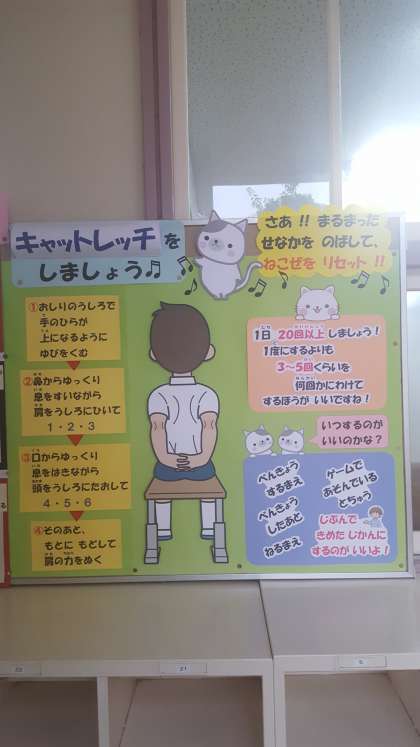 キャットレッチを
しましょう♫
さあ!! まるまった
せなかを のばして、
ねこぜを リセット!!
①おしりのうしろで
手のひらが
上になるように
ゆびをくむ
②鼻からゆっくり
息をすいながら
肩をうしろにひいて
1・2・3
③口からゆっくり
息をはきながら
頭をうしろにたおして
4・5・6
④そのあと、
もとに もどして
肩の力をぬく
1日 20回以上しましょう!
1度にするよりも
3~5回くらいを
何回かにわけて
するほうが いいですね!
いつするのが
いいのかな?
べんきょう
するまえ
べんきょう
したあと
ねるまえ
ゲームで
あそんでいる
とちゅう
じぶんで
きめた じかんに
するのが いいよ!
21